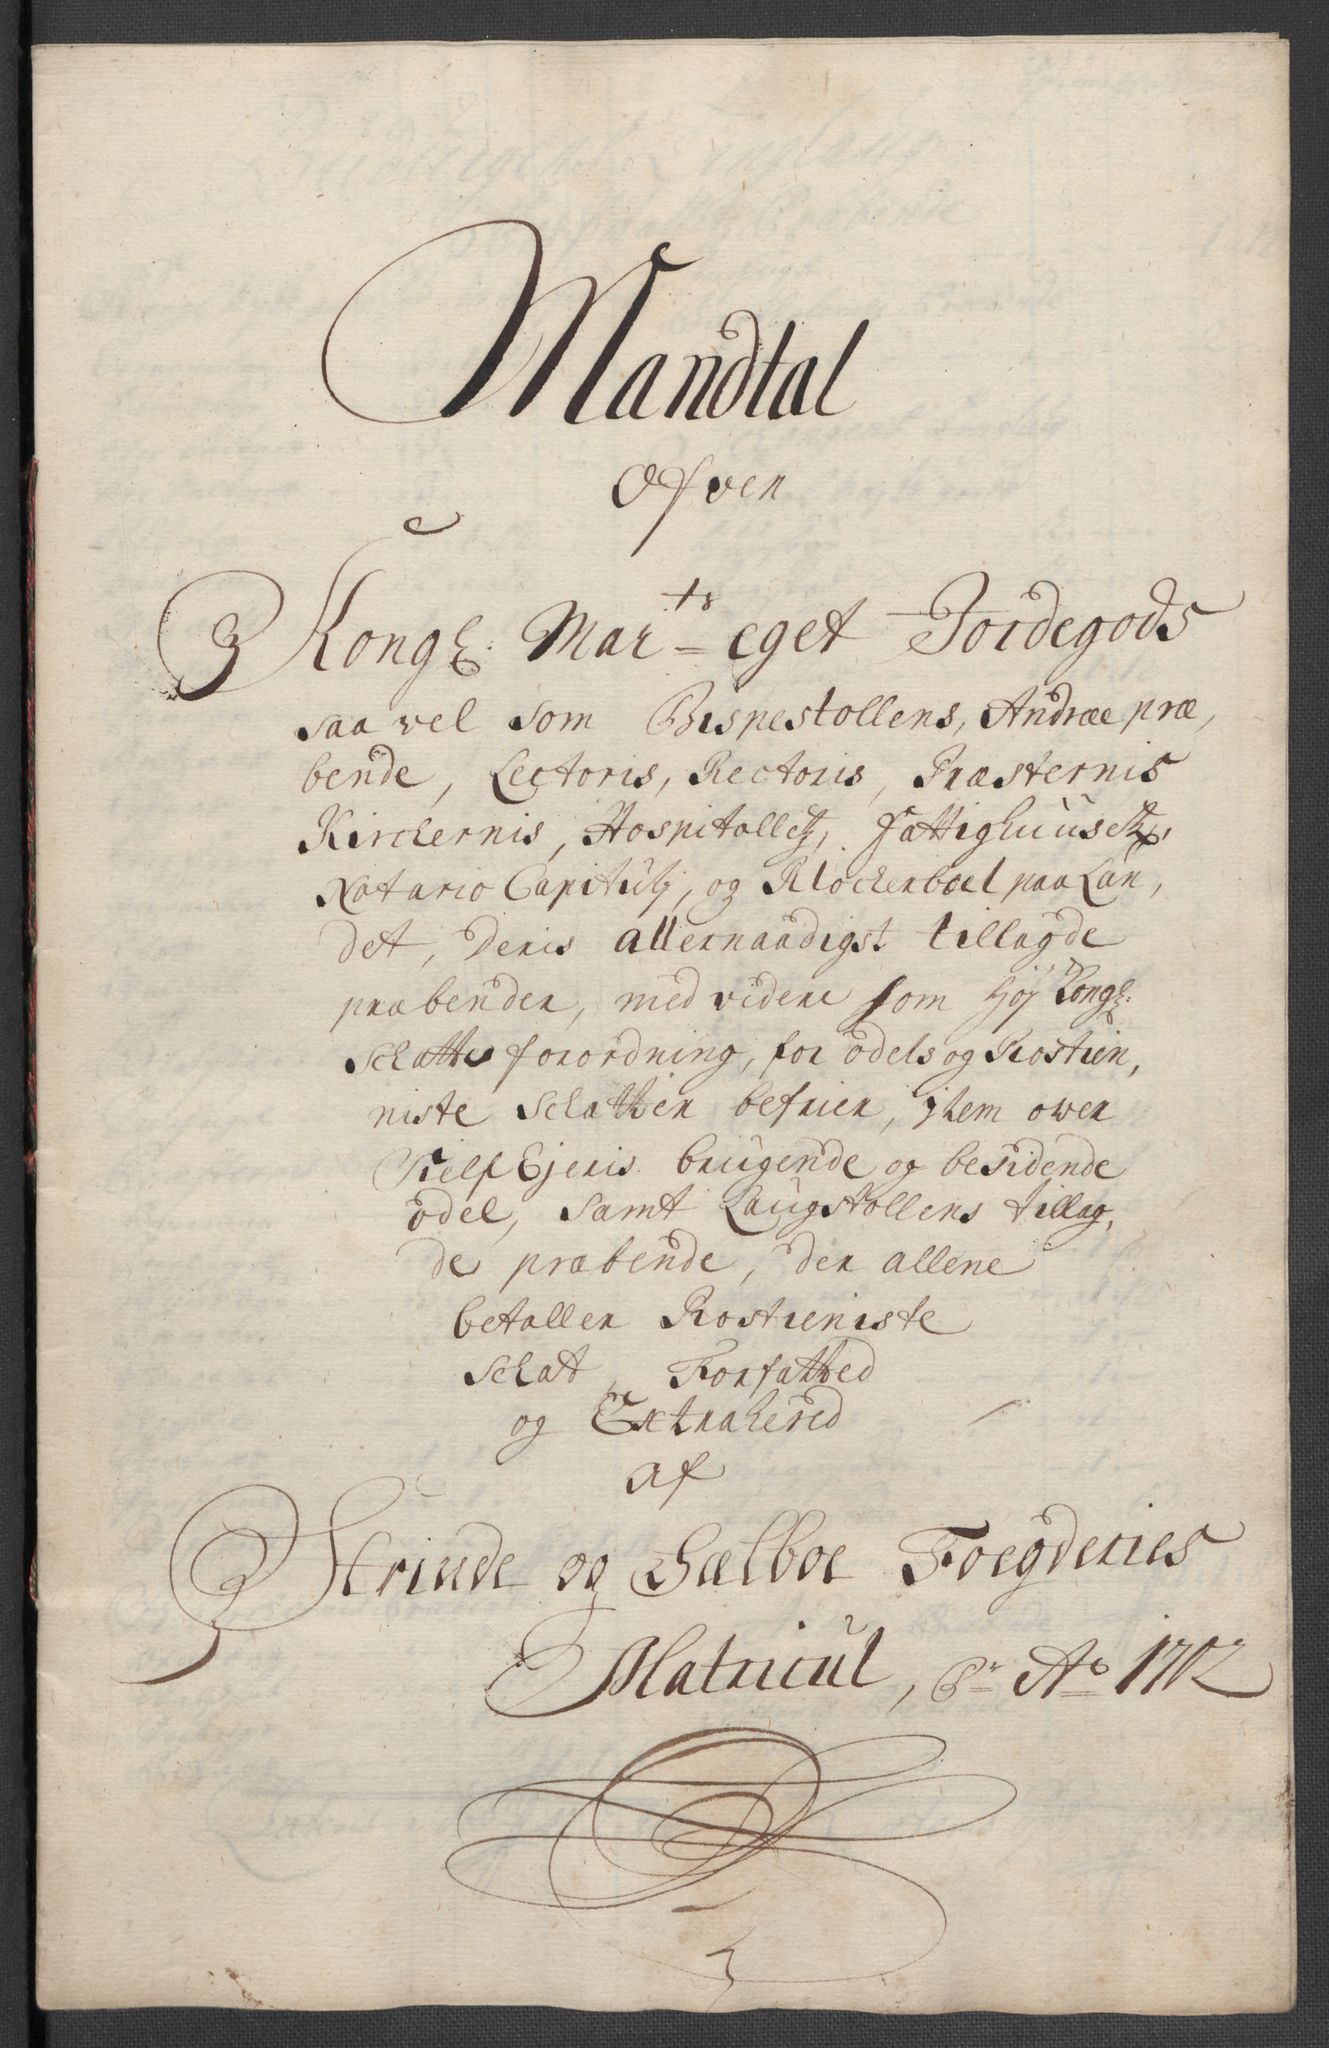 Mandtal
Ofver
Kongl: Maÿ.ts eget Jordegods
saa vel som Bispestollens, Andreæ præ,
bende, Lectoris, Rectoris, Præsternis
Kirchernis, Hospitalletz, Fattighuusetz,
Notario Capitulj, og Klockerboel paa Lan,
det, deris allernaadigst tillagde
præbender, med videre som Høy Kongl:
Schatte forordning, for odels og Rostien,
niste Schatter befrier, jtem over
Sielf Ejeris brugende og besidende
odel, samt Laugstollens tillag,
de præbende, der allene
betaller Rostieniste
Schat, Forfatted
og Extraherid
af
Strinde og Sælboe Foegderies
Matricul, Pr Ao 1702